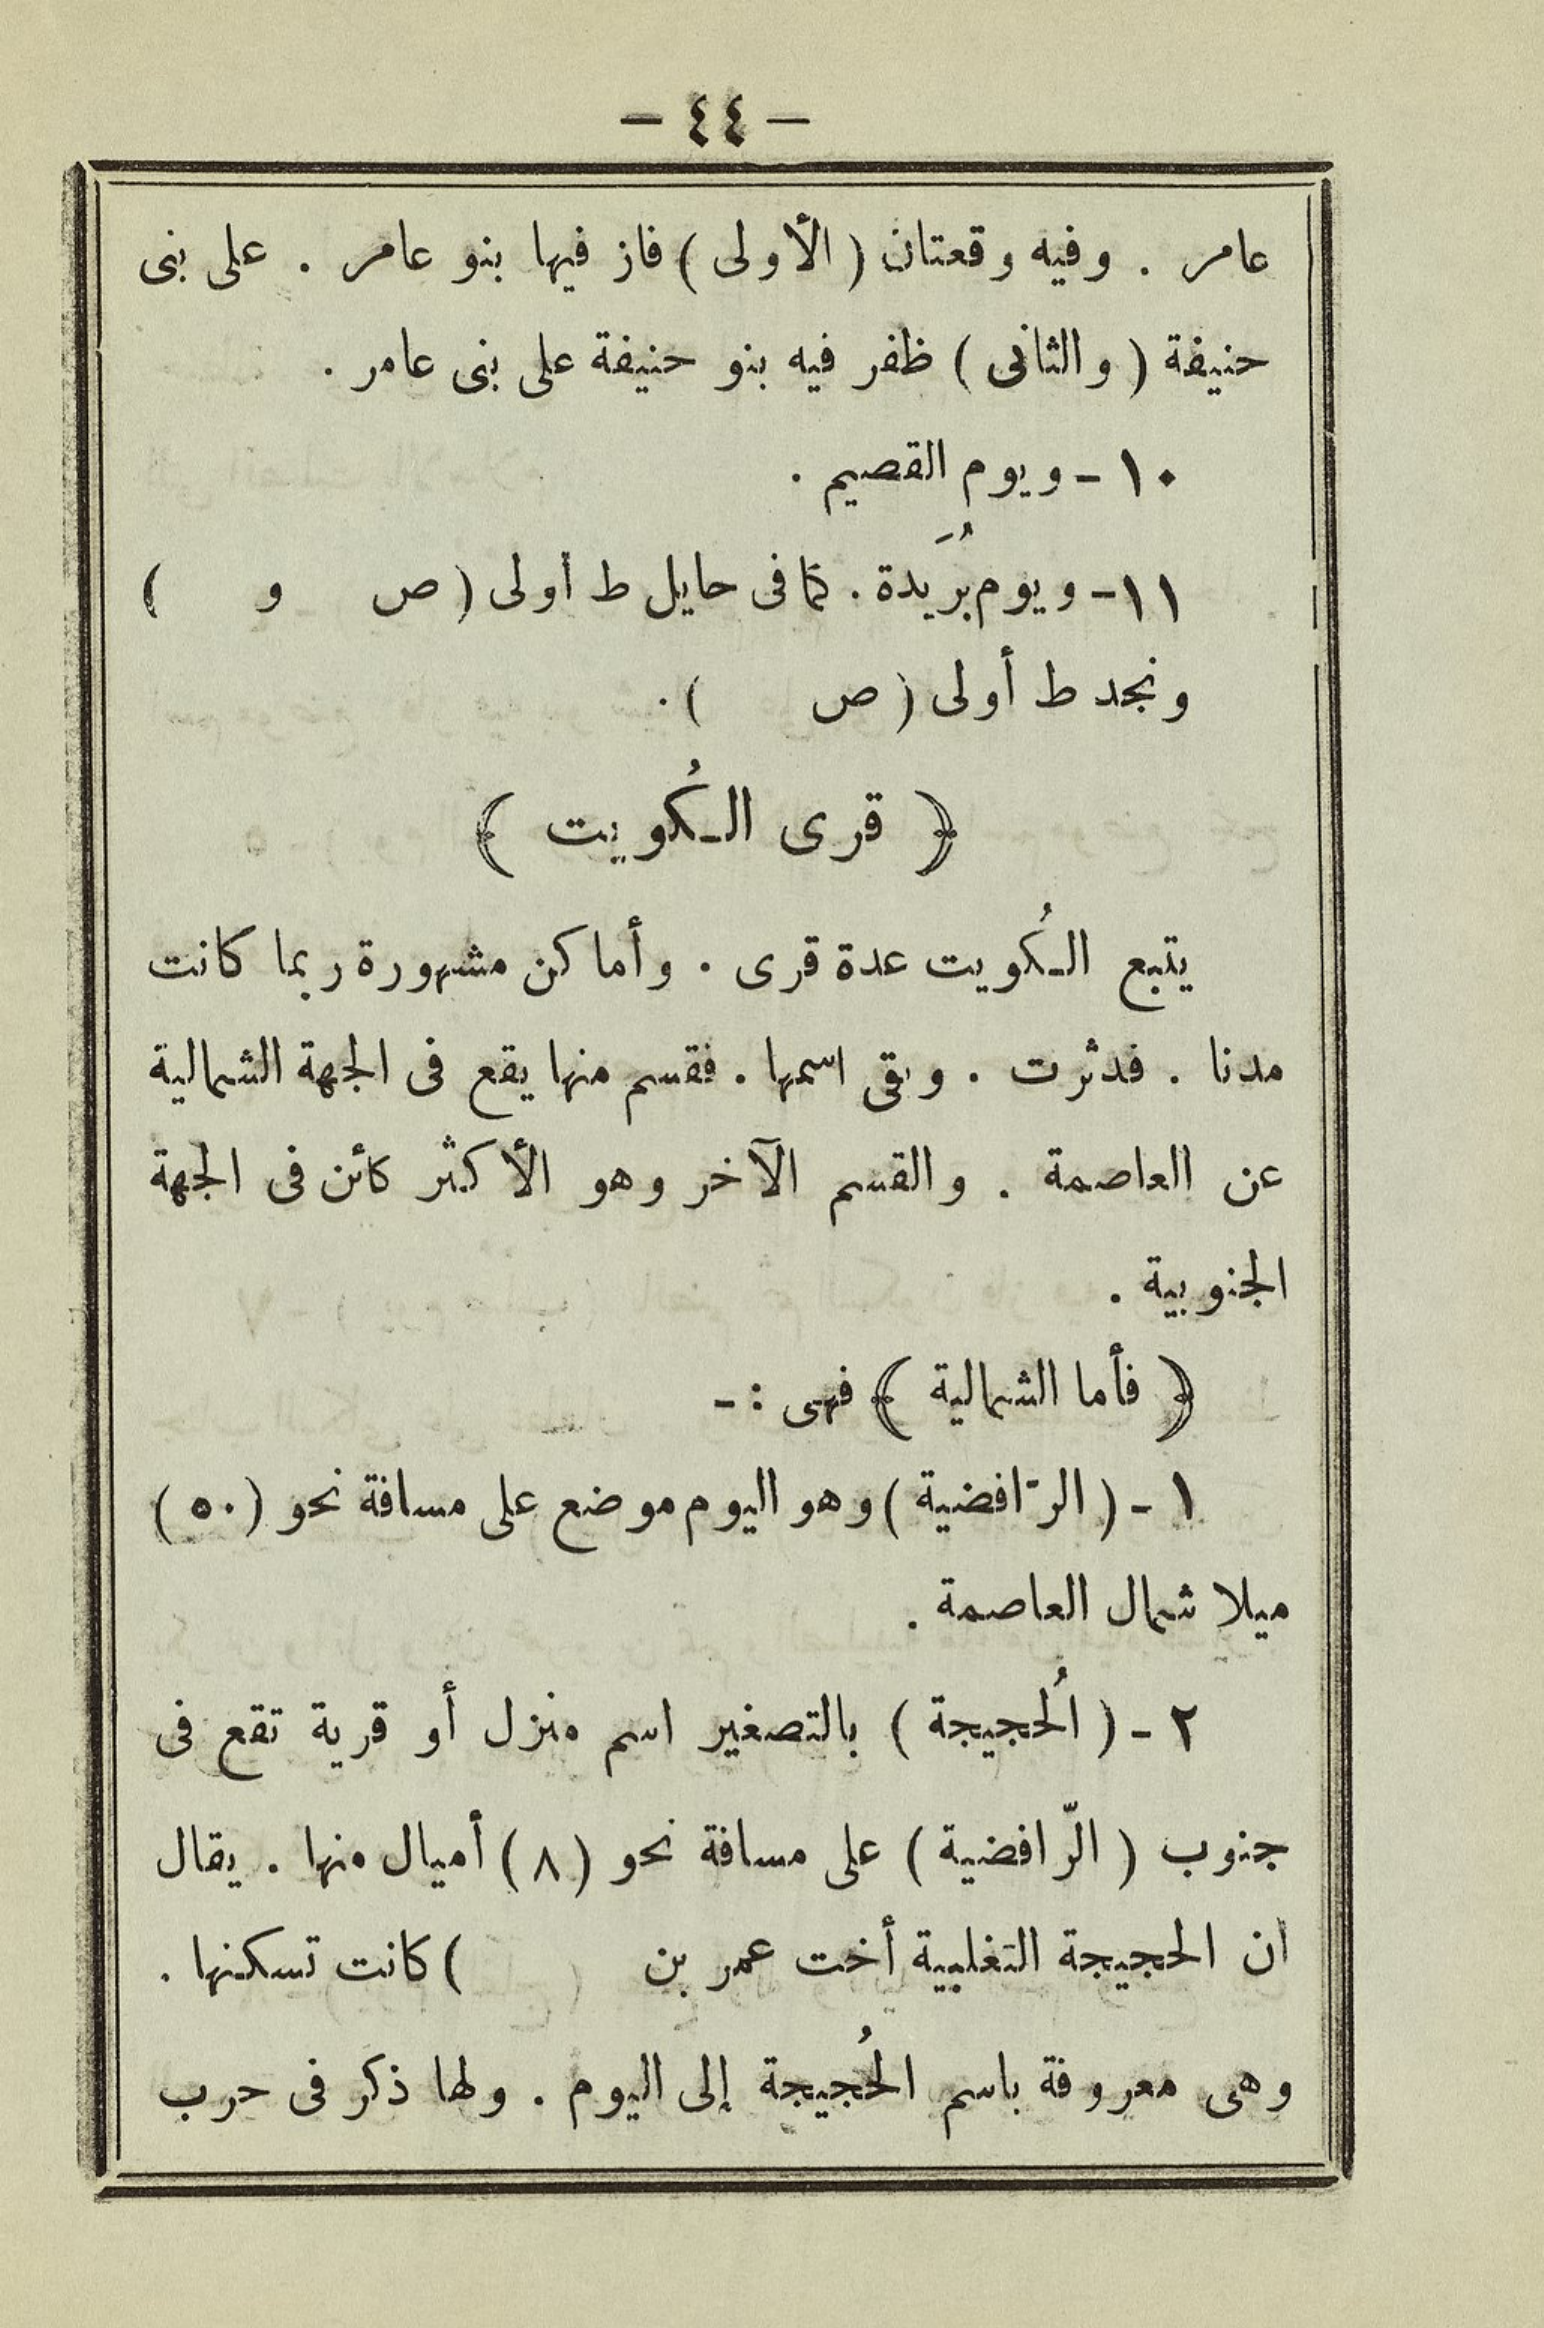 — ٤٤ —
عامر . وفيه وقعتان ( الأولى ) فاز فيها بنو عامر . على بنى
حنيفة ( والثانى ) ظفر فيه بنو حنيفة على بنى عامر .
١٠ - ويوم القصيم .
١١ - ويوم بُرَيدة . كما فى حايل ط أولى ( ص و )
ونجد ط أولى ( ص ) .
﴿ قرى الكُويت ﴾
يتبع الكُويت عدة قرى . وأماكن مشهورة ربما كانت
مدنا . فدثرت . وبقى اسمها . فقسم منها يقع فى الجهة الشمالية
عن العاصمة . والقسم الآخر وهو الأكثر كائن فى الجهة
الجنوبية .
﴿ فأما الشمالية ﴾ فهى : -
١ - ( الرّافضية ) وهو اليوم موضع على مسافة نحو ( ٥٠ )
ميلا شمال العاصمة .
٢ - ( الُحجيجة ) بالتصغير اسم منزل أو قرية تقع فى
جنوب ( الرّافضية ) على مسافة نحو ( ٨ ) أميال منها . يقال
ان الحجيجة التغلبية أخت عمر بن ) كانت تسكنها .
وهى معروفة باسم الحُجيجة إلى اليوم . ولها ذكر فى حرب